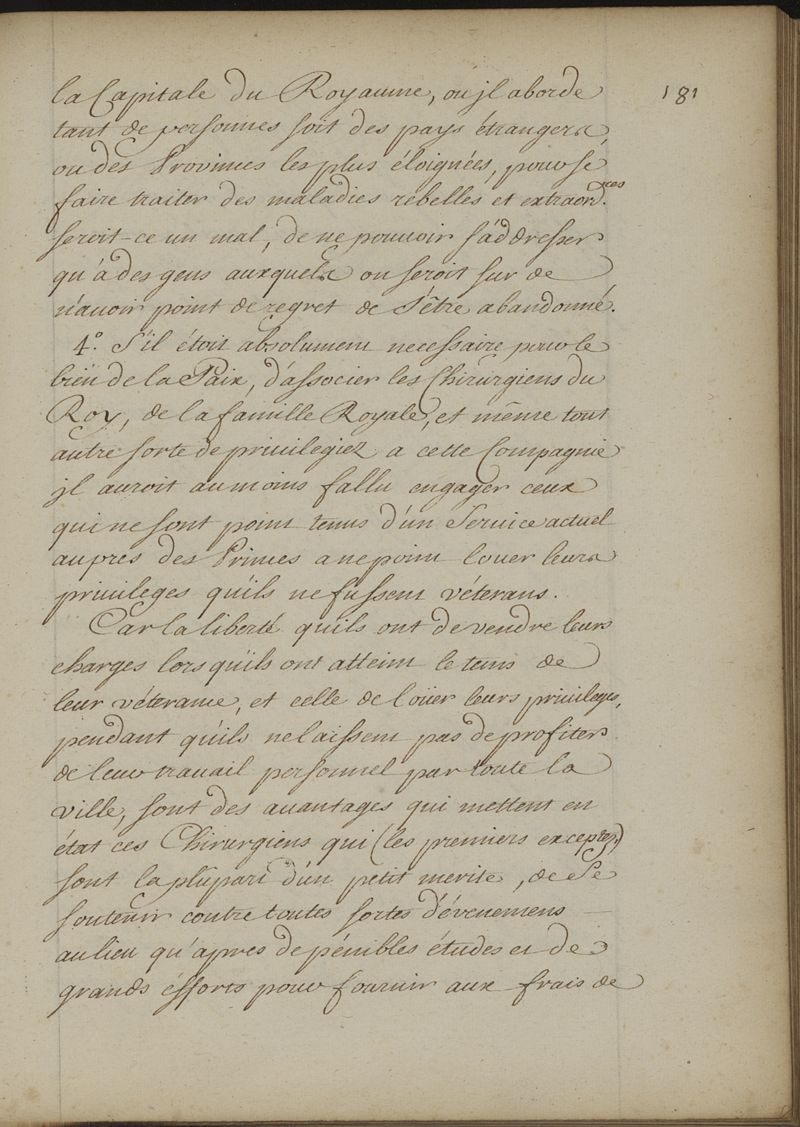 181
la Capitale du Royaume, ou jl aborde
tant de personnes soit des pays étrangers,
ou des Provinces les plus éloignées, pour se
faire traiter des maladies rebelles et extraord.res
seroit-ce un mal, de ne pouvoir s'addresser
qu'à des gens auxquels on seroit sur de
n'avoir point de regret de s'être abandonné.
4.° S'il étoit absolument necessaire pour le
bien de la Paix, d'associer les Chirurgiens du
Roy, de la famille Royale, et même tout
autre sorte de privilegiez a cette Compagnie
jl auroit au moins fallu engager ceux
qui ne sont point tenus d'un Service actuel
aupres des Princes a ne point louer leurs
privileges qu'ils ne fussent véterans.
Car la liberté qu'ils ont de vendre leurs
charges lors qu'ils ont atteint le tems de
leur véterance, et celle de loüer leurs privileges,
pendant qu'ils ne laissent pas de profiter
de leur travail personnel par toute la
ville, sont des avantages qui mettent en
état ces Chirurgiens qui (les premiers exceptez)
sont la plûpart d'un petit merite, de se
soutenir contre toutes sortes d'évenemens
au lieu qu'apres de pénibles études et de
grands éfforts pour fournir aux frais de